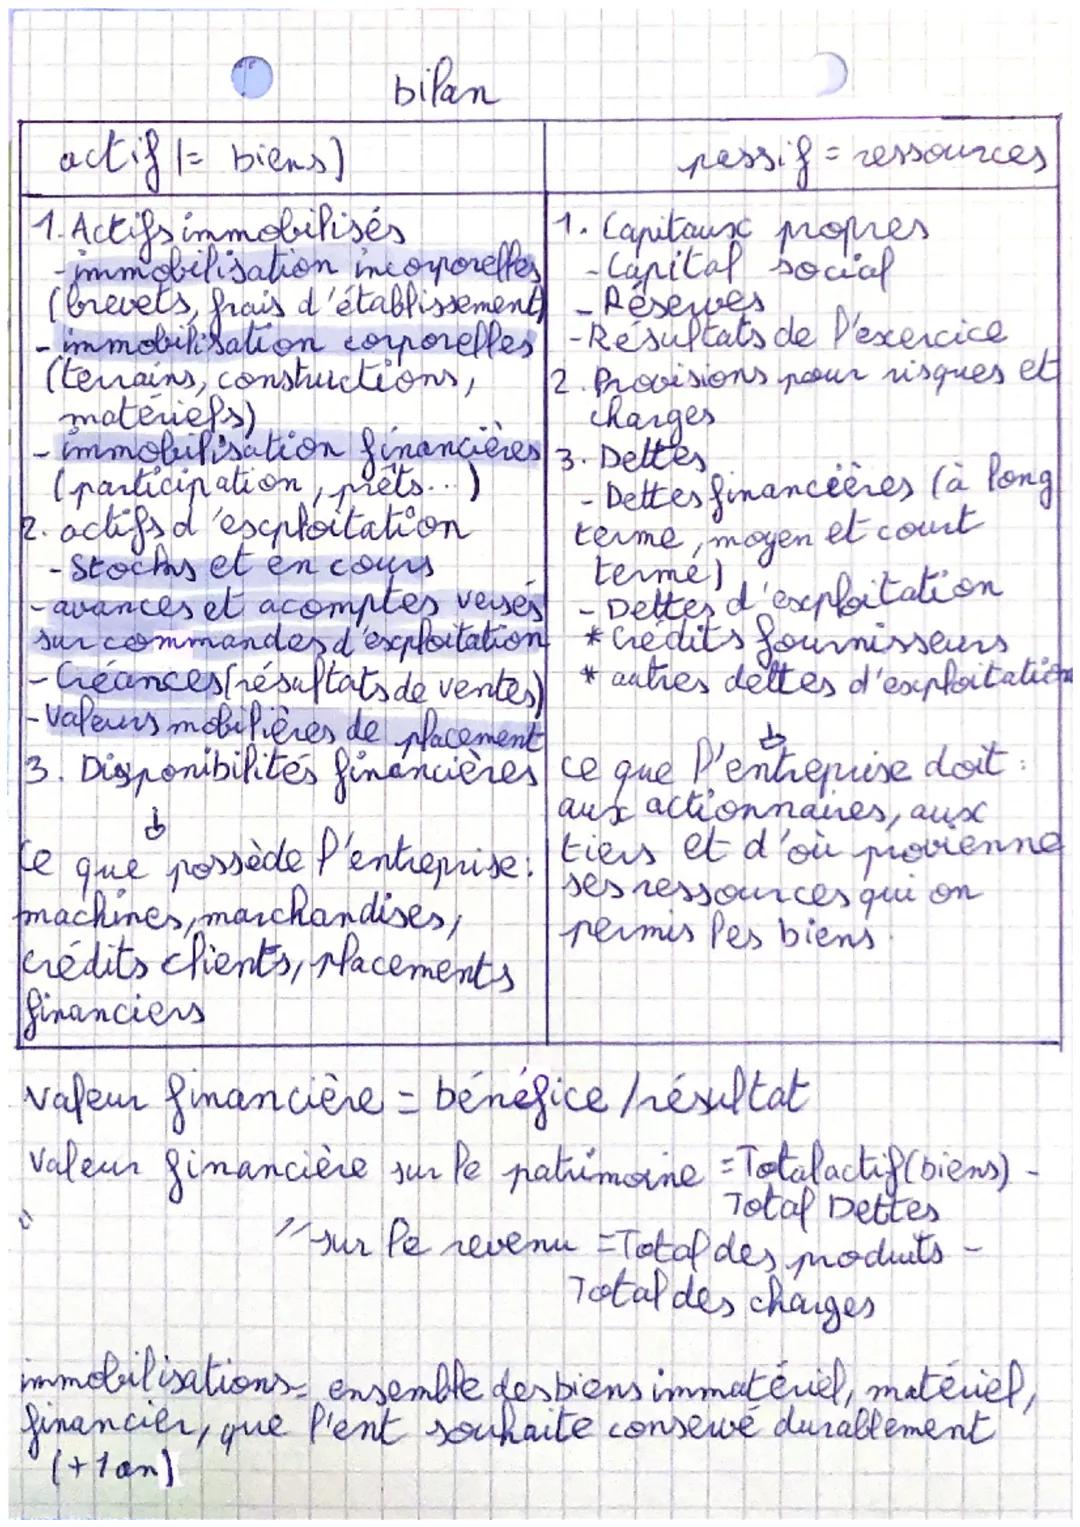 bilan
actif (= biens)
passif = ressources
1. Actifs immobilisés
- immobilisation incorporelles
(brevets, frais d'établissement)
- immobilisation corporelles
(terrains, constructions,
matériels)
- immobilisation financières
(participation, prêts...)
2. actifs d'exploitation
- Stocks et en cours
- avances et acomptes versés
sur commandes d'exploitation
- Créances (résultats de ventes)
- Valeurs mobilières de placement
3. Disponibilités financières
↓
Ce que possède l'entreprise:
machines, marchandises,
crédits clients, placements
financiers
1. Capitaux propres
- Capital social
- Réserves
- Résultats de l'exercice
2. Provisions pour risques et
charges
3. Dettes
- Dettes financières (à long
terme, moyen et court
terme)
- Dettes d'exploitation
* Crédits fournisseurs
* autres dettes d'exploitation
↓
ce que l'entreprise doit :
aux actionnaires, aux
tiers et d'où provienne
ses ressources qui on
permis les biens.
Valeur financière = bénéfice / résultat
Valeur financière sur le patrimoine = Total actif (biens) -
Total Dettes
" sur le revenu = Total des produits -
Total des charges
immobilisations = ensemble des biens immatériel, matériel,
financier, que l'ent souhaite conservé durablement
(+ 1 an)